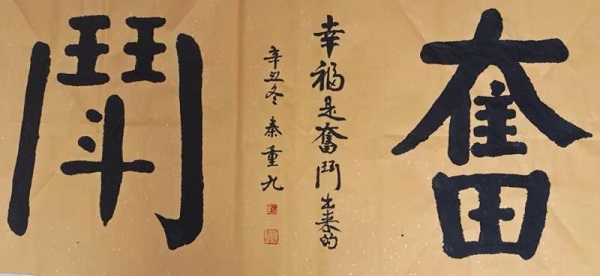 奮
幸福是奮鬥出来的
辛丑冬 秦重九
鬥